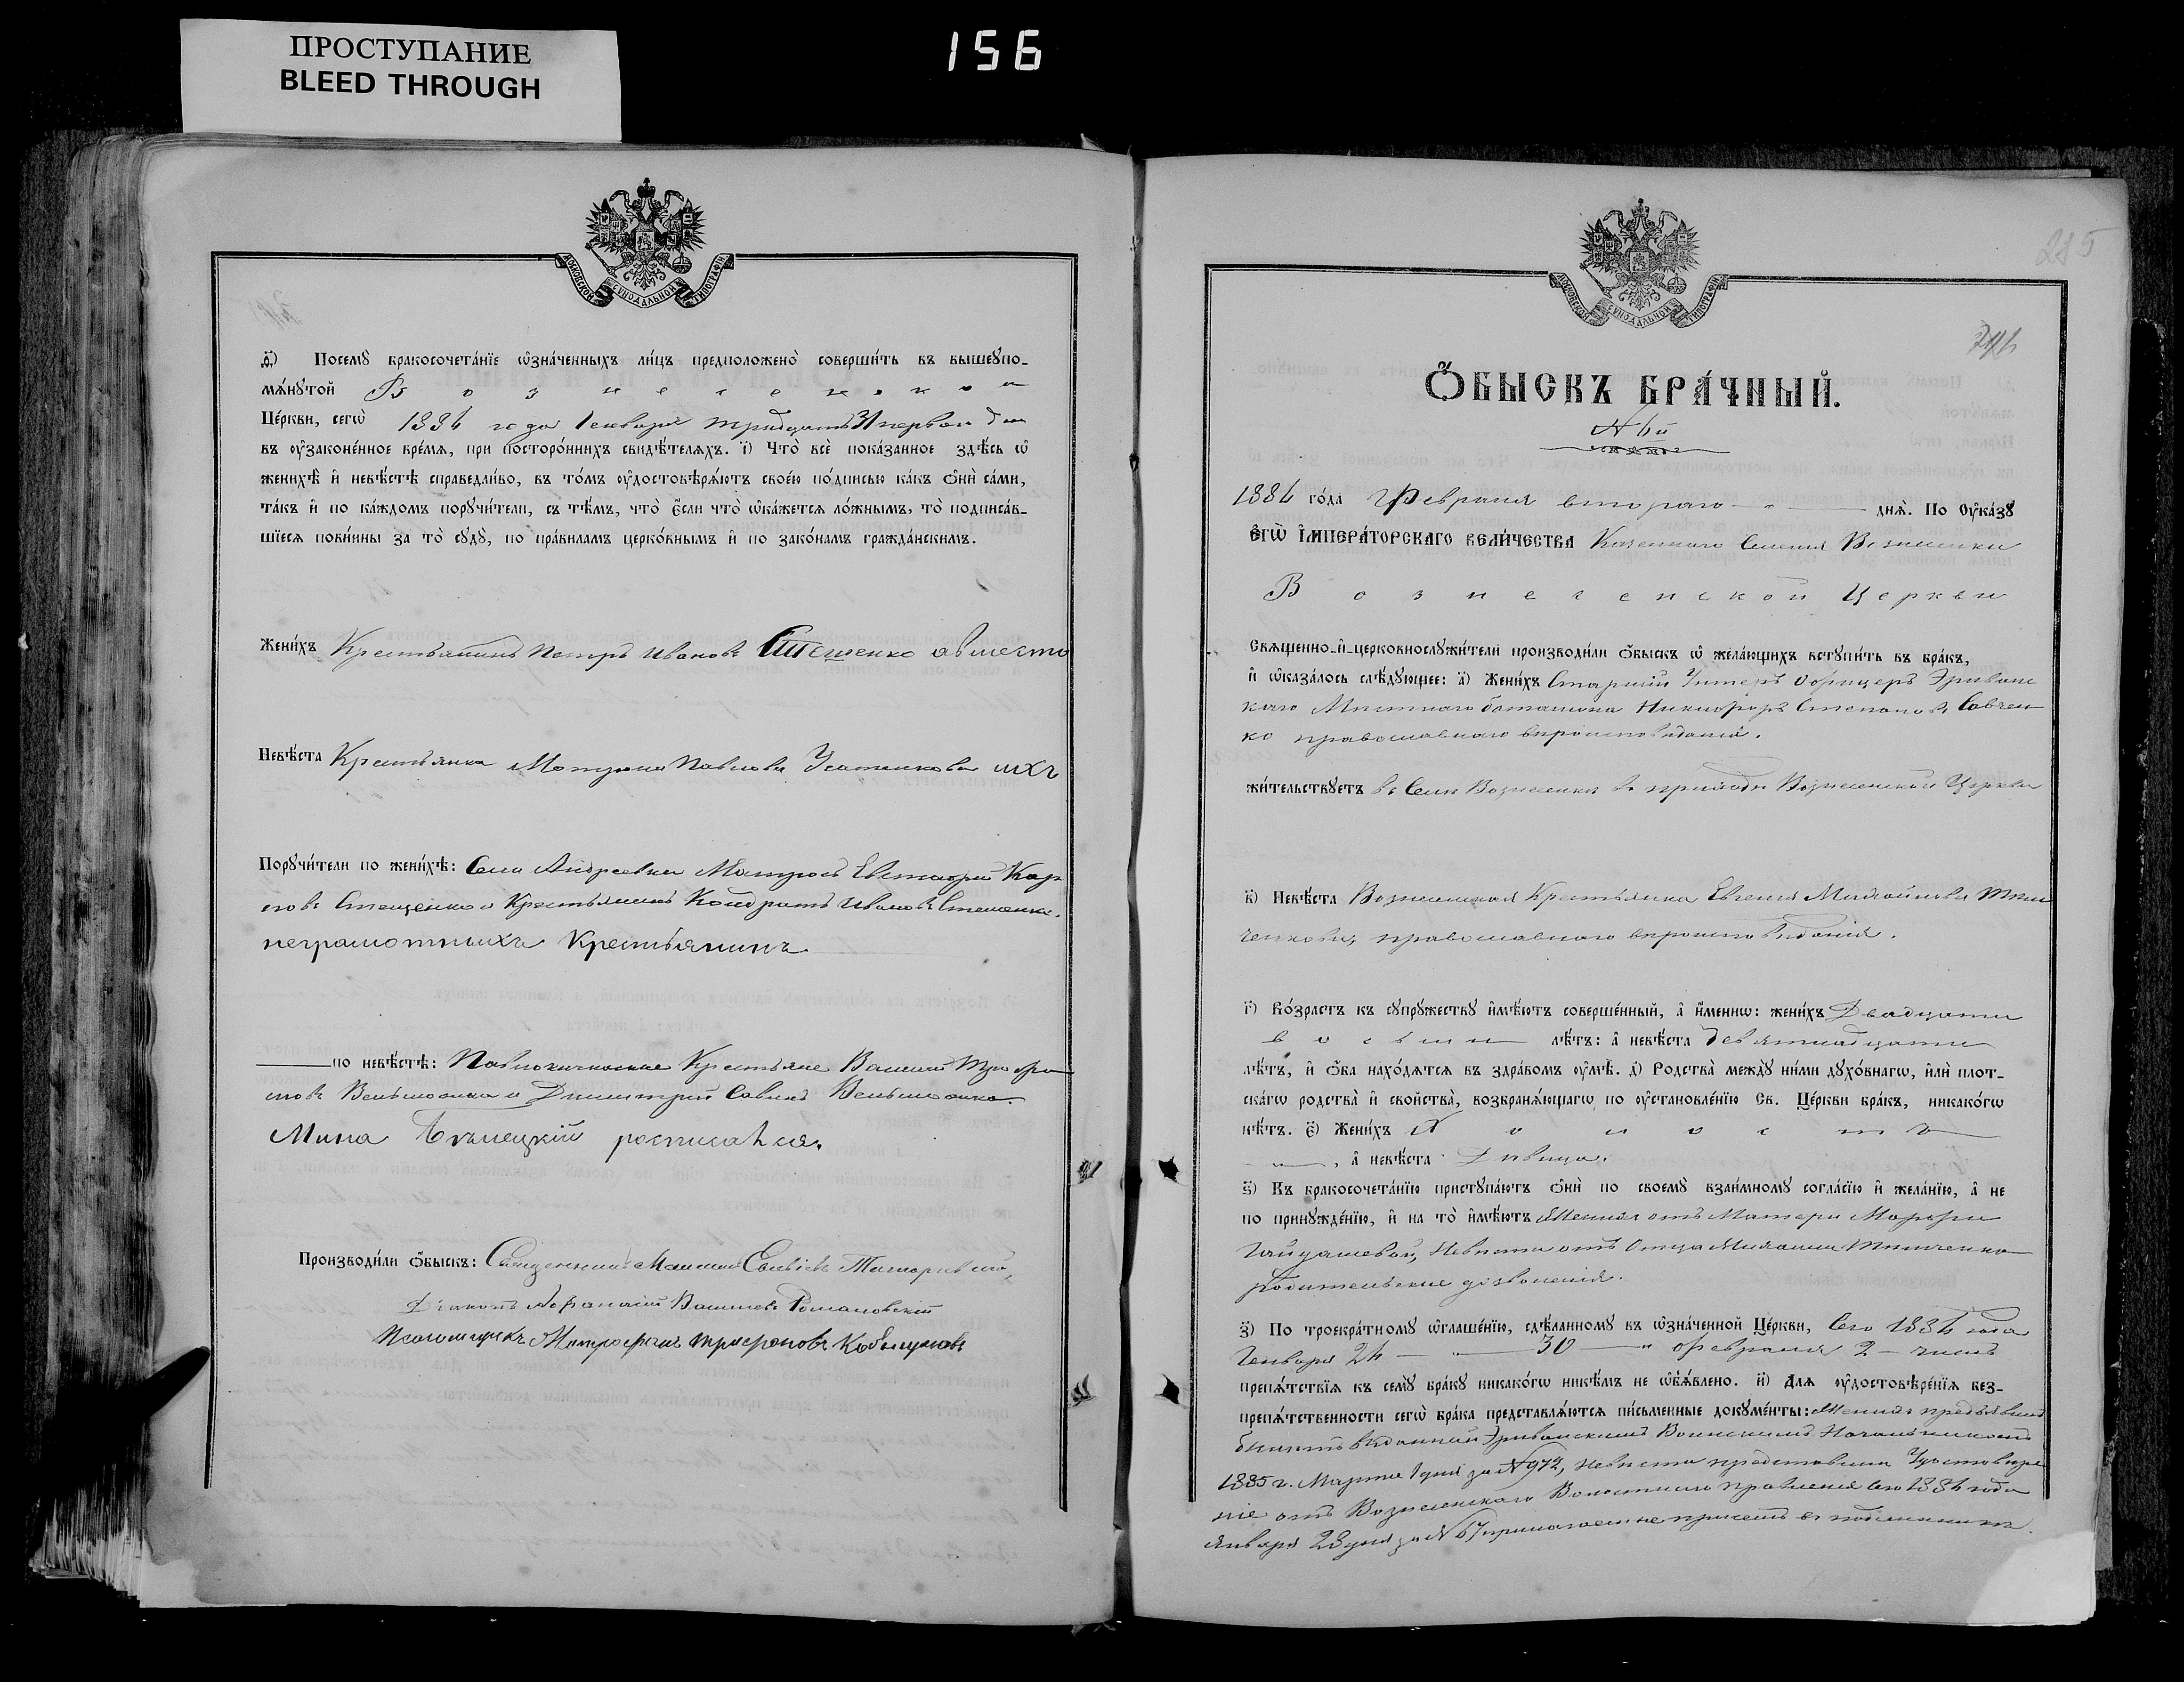 ПРОСТУПАНИЕ
BLEED THROUGH
156
МОСКОВСКОЙ СѴНОДАЛЬНОЙ ТИПОГРАФІИ
ѳ҃) Посемꙋ̀ бракосочета́нїе ѡ҆зна́ченныхъ ли́цъ предположено̀ соверши́ть въ вышеꙋпо-
мѧ́нꙋтой Вознесенской
Це́ркви, сегѡ̀ 1886 года Генваря тридцать 31 первого дня
въ ᲂу҆законе́нное вре́мѧ, при посторо́ннихъ свидѣ́телѧхъ. і҃) Что̀ всѐ пока́занное здѣ́сь ѡ҆
женихѣ̀ и҆ невѣ́стѣ справедли́во, въ то́мъ ᲂу҆достовѣрѧ́ютъ свое́ю по́дписью ка́къ ѻ҆нѝ са́ми,
та́къ и҆ по ка́ждомъ порꙋчи́тели, съ тѣ́мъ, что̀ є҆́сли что̀ ѡ҆ка́жетсѧ ло́жнымъ, то̀ подписа́в-
шїесѧ пови́нны за то̀ сꙋдꙋ̀, по пра́виламъ церко́внымъ и҆ по зако́намъ гражда́нскимъ.
Жени́хъ Крестьянинъ Петръ Ивановъ Стеценко а вместо
Невѣ́ста Крестьянка Матрона Павлова ихъ
Порꙋчи́тели по женихѣ̀: Села Андреевки Матросъ Евстафій Кар
повъ Стеценко и Крестьянинъ Кондратъ Ивановъ Стеценко.
неграмотныхъ Крестьянинъ
по невѣ́стѣ: Крестьяне Василій Трофи
мовъ и Димитрій Савинъ
Мина росписался.
Производи́ли ѻ҆бы́скъ: Священникъ Максимъ
Діаконъ Афанасій Васильевъ Романовскій
Псаломщикъ Митрофанъ Трофимовъ
285
МОСКОВСКОЙ СѴНОДАЛЬНОЙ ТИПОГРАФІИ
Ѻ҆БЫСКЪ БРА́ЧНЫЙ.
№ 6й
1886 го́да Февраля второго днѧ̀. По Оу҆ка́зꙋ
є҆гѡ̀ і҆мпера́торскагѡ вели́чества Казеннаго Селенія Вознесенки
Вознесенской Церкви
Свѧще́нно-и҆-церковнослꙋжи́тели производи́ли ѻ҆́быскъ ѡ҆ жела́ющихъ встꙋпи́ть въ бра́къ,
и҆ ѡ҆каза́лось слѣ́дꙋющее: а҃) Жени́хъ Старшій Унтеръ Офицеръ Эриванс
каго Мѣстнаго баталіона Никифоръ Степановъ Савчен
ко православнаго вѣроисповѣданія.
жи́тельствꙋетъ въ Селе Вознесенки въ приходѣ Вознесенской Церкви
в҃) Невѣ́ста Вознесенская Крестьянка Евгенія
православнаго вѣроисповѣданія.
г҃) Во́зрастъ къ сꙋпрꙋ́жествꙋ и҆мѣ́ютъ соверше́нный, а҆ и҆́меннѡ: жени́хъ Двадцати
восьми лѣ́тъ: а҆ невѣ́ста девятнадцати
лѣ́тъ, и҆ ѻ҆́ба нахо́дѧтсѧ въ здра́вомъ ᲂу҆мѣ̀. д҃) Родства̀ междꙋ̀ ни́ми дꙋхо́внагѡ, и҆лѝ плот-
ска́гѡ родства̀ и҆ свойства̀, возбранѧ́ющагѡ по ᲂу҆становле́нїю Св. Це́ркви бра́къ, никако́гѡ
нѣ́тъ. є҃) Жени́хъ Холостъ
, а҆ невѣ́ста Дѣвица.
ѕ҃) Къ бракосочета́нїю пристꙋпа́ютъ ѻ҆нѝ по своемꙋ̀ взаи́мномꙋ согла́сїю и҆ жела́нїю, а҆ не
по принꙋжде́нїю, и҆ на то̀ и҆мѣ́ютъ Женихъ отъ Матери Марфы
Невѣста отъ Отца
родительскіе дозволенія.
з҃) По троекра́тномꙋ ѡ҆глаше́нїю, сдѣ́ланномꙋ въ ѡ҆зна́ченной Це́ркви, Сего 1886 года
Генваря 26 30 Февраля 2 числъ
препѧ́тствїѧ къ семꙋ̀ бра́кꙋ никако́гѡ никѣ́мъ не ѡ҆б̾ѧ́влено. и҃) Длѧ ᲂу҆достовѣре́нїѧ без-
препѧ́тственности сегѡ̀ бра́ка представлѧ́ютсѧ пи́сьменные докꙋме́нты: Женихъ предъявилъ
билетъ выданный Эриванскимъ Воинскимъ Начальникомъ
1885 г. Марта 1 дня за № 972, невѣста представила Удостовѣре
ніе отъ Вознесенскаго Волостнаго правленія сего 1886 года
Января 28 дня за № 67